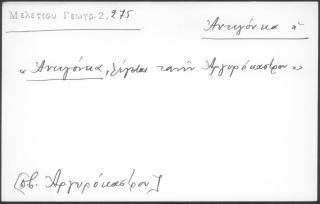 Μελετίου Γεωγρ. 2, 275
Ἀντιγόνεια ἡ
« Ἀντιγόνεια, λέγεται τανῦν Ἀργυρόκαστρον »
[πβ. Ἀργυρόκαστρον]